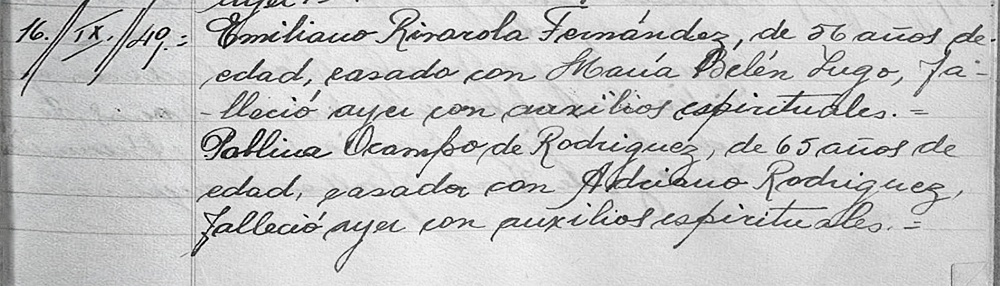 16./IX./40.= Emiliano Rivarola Fernández, de 56 años de
edad, casado con María Belén Lugo, fa-
-lleció ayer con auxilios espirituales.=
Pablina Ocampo de Rodriguez, de 65 años de
edad, casada con Adriano Rodriguez,
falleció ayer con auxilios espirituales.=